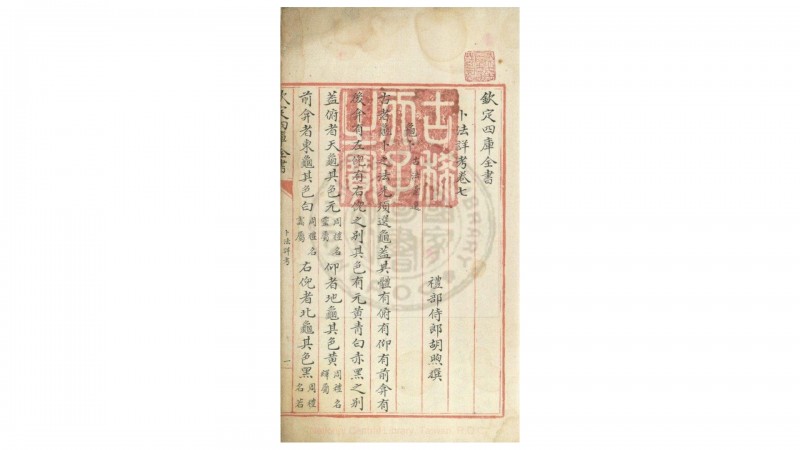 欽定四庫全書
卜法詳考卷七
禮部侍郎胡煦撰
古者
卜之法先須選龜蓋其體有俯有仰有前弇有
後弇有左倪有右倪之別其色有元黃青白赤黑之別
蓋俯者天龜其色元周禮名靈屬仰者地龜其色黃周禮名繹屬
前弇者東龜其色白周禮名 屬右倪者北龜其色黑周禮名若
欽定四庫全書
卜法詳考
一
古稀天子之寶